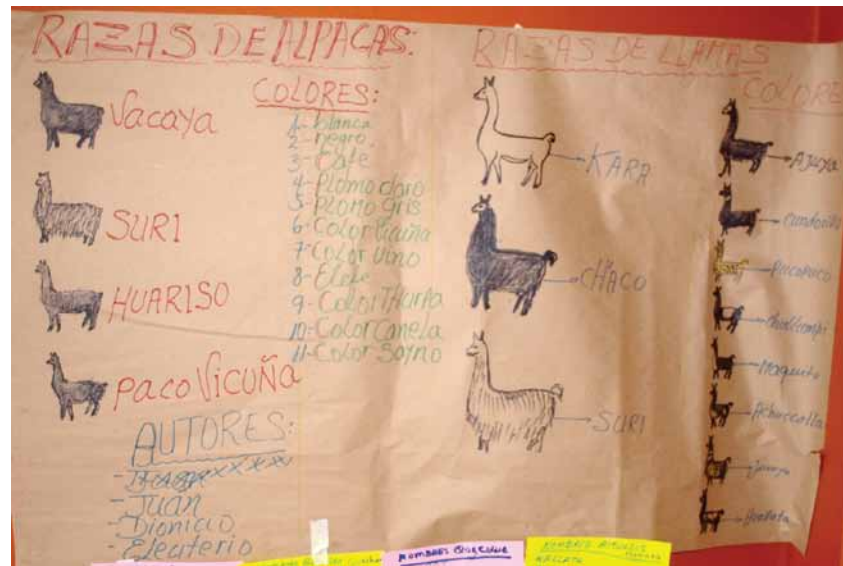 RAZAS DE ALPACAS:
Vacaya
SURI
HUARISO
PACO VICUÑA
COLORES:
1- blanca
2- negro
3- Cafe
4- Plomo claro
5- Plomo Gris
6- Color Vicuña
7- Color Vino
8- Elefe
9- Color THurpa
10- Color Canela
11- Color Sayno
AUTORES:
- Juan
- Dionicio
- Eleuterio
RAZAS DE LLAMAS
KARA
CHACO
SURI
COLORE
Ajuya
Pacopaco
Challcampi
Maquito
NOMBRES
NOMBRES